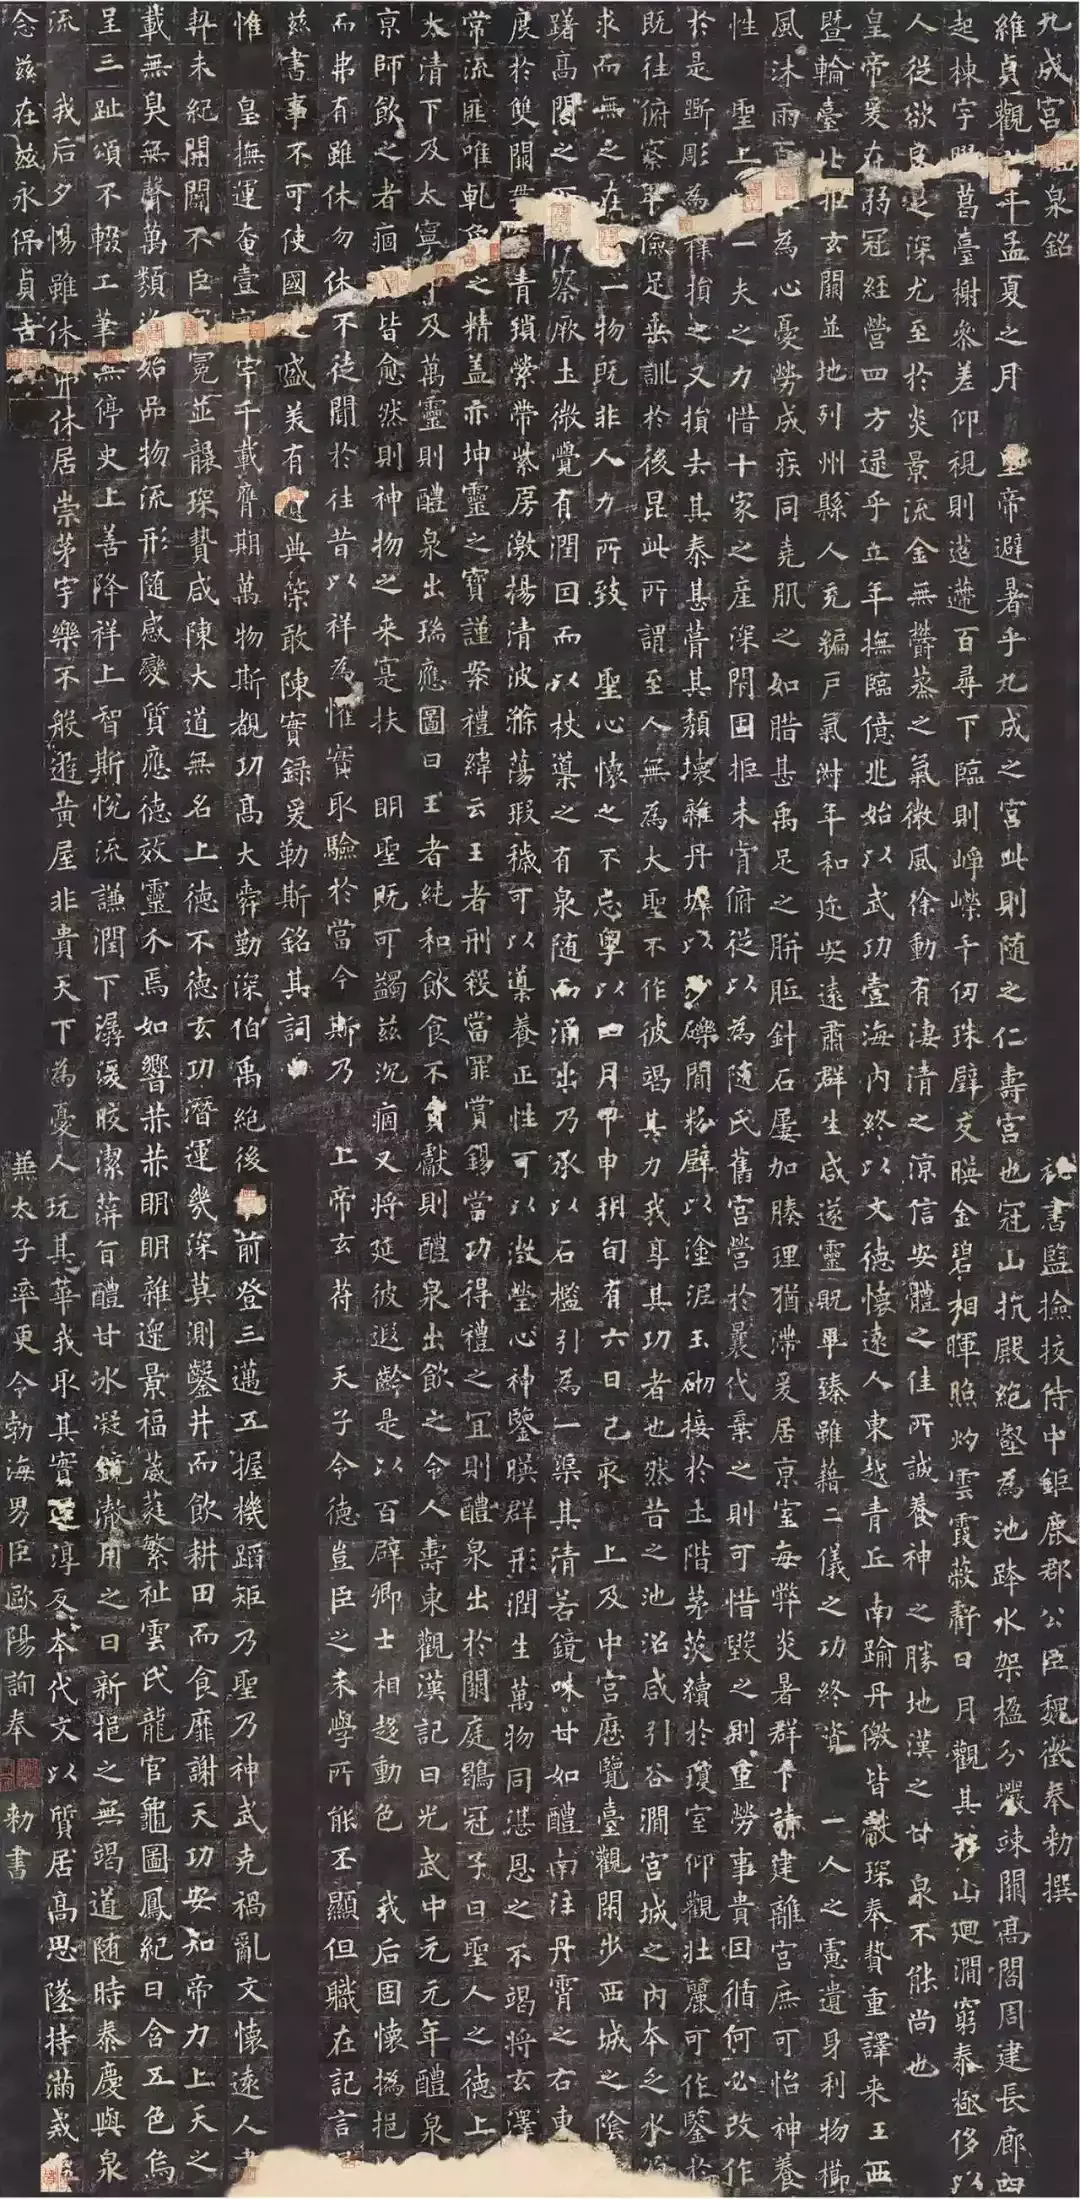 九成宮泉銘 秘書監撿挍侍中鉅鹿郡公臣魏徵奉勅撰
維貞觀年孟夏之月 皇帝避暑乎九成之宮此則随之仁壽宮也冠山抗殿絶壑為池跨水架楹分巖竦闕高閣周建長廊四
起棟宇膠葛臺榭參差仰視則迢遰百尋下臨則崢嶸千仞珠璧交暎金碧相暉照灼雲霞蔽虧日月觀其移山迴澗窮泰極侈以
人從欲良足深尤至於炎景流金無欝蒸之氣微風徐動有淒清之涼信安體之佳所誠養神之勝地漢之甘泉不能尚也
皇帝爰在弱冠經營四方逯乎立年撫臨億兆始以武功壹海內終以文德懷遠人東越青丘南踰丹儌皆獻琛奉贄重譯来王西
暨輪臺北拒玄闕並地列州縣人充編戸氣淑年和迩安遠肅群生咸遂靈貺畢臻雖藉二儀之功終資 一人之慮遺身利物櫛
風沐雨百為心憂勞成疾同堯肌之如腊甚禹足之胼胝針石屢加腠理猶滯爰居京室每弊炎暑群下請建離宮庶可怡神養
性 聖上一夫之力惜十家之產深閇固拒未肯俯從以為随氏舊宮營於曩代棄之則可惜毀之則重勞事貴因循何必改作
於是斵彫為樸損之又損去其泰甚葺其頹壞雜丹墀以沙礫間粉壁以塗泥玉砌接於土階茅茨續於瓊室仰觀壯麗可作鑒於
既往俯察卑儉足垂訓於後昆此所謂至人無為大聖不作彼竭其力我享其功者也然昔之池沼咸引谷澗宮城之內本乏水源
求而無之在一物既非人力所致 聖心懷之不忘粵以四月甲申朔旬有六日己亥 上及中宮歷覽臺觀閑步西城之陰
躊高閣之下察厥土微覺有潤因而以杖導之有泉随而涌出乃承以石檻引為一渠其清若鏡味甘如醴南注丹霄之右東
度於雙闕貫青瑣縈帶紫房激揚清波滌蕩瑕穢可以導養正性可以澂瑩心神鑒暎群形潤生萬物同湛恩之不竭將玄澤
常流匪唯乹象之精盖亦坤靈之寶謹案禮緯云王者刑殺當罪賞錫當功得禮之宜則醴泉出於闕庭鶡冠子曰聖人之德上
太清下及太寧下及萬靈則醴泉出瑞應圖曰王者純和飲食不貢獻則醴泉出飲之令人壽東觀漢記曰光武中元元年醴泉
京師飲之者痼皆愈然則神物之来寔扶 明聖既可蠲兹沉痼又將延彼遐齡是以百辟卿士相趍動色 我后固懷撝挹
而弗有雖休勿休不徒聞於往昔以祥為惟實取驗於當今斯乃 上帝玄苻 天子令德豈臣之末學所能丕顯但職在記言
兹書事不可使國之盛美有遺典策敢陳實録爰勒斯銘其詞曰
惟 皇撫運奄壹寰宇千載膺期萬物斯覩功高大舜勤深伯禹絶後前登三邁五握機蹈矩乃聖乃神武克禍亂文懷遠人書
契未紀開闢不臣冠冕並襲琛贄咸陳大道無名上德不德玄功潛運幾深莫測鑿井而飲耕田而食靡謝天功安知帝力上天之
載無臭無聲萬類資始品物流形随感變質應德效靈介焉如響赫赫明明雜遝景福葳蕤繁祉雲氏龍官龜圖鳳紀日含五色烏
呈三趾頌不輟工筆無停史上善降祥上智斯悅流謙潤下潺湲皎潔蓱旨醴甘冰凝鏡澈用之日新挹之無竭道随時泰慶與泉
流 我后夕惕雖休弗休居崇茅宇樂不般遊黃屋非貴天下為憂人玩其華我取其實還淳反本代文以質居高思墜持滿戒溢
念兹在兹永保貞吉 兼太子率更令勃海男臣歐陽詢奉 勅書